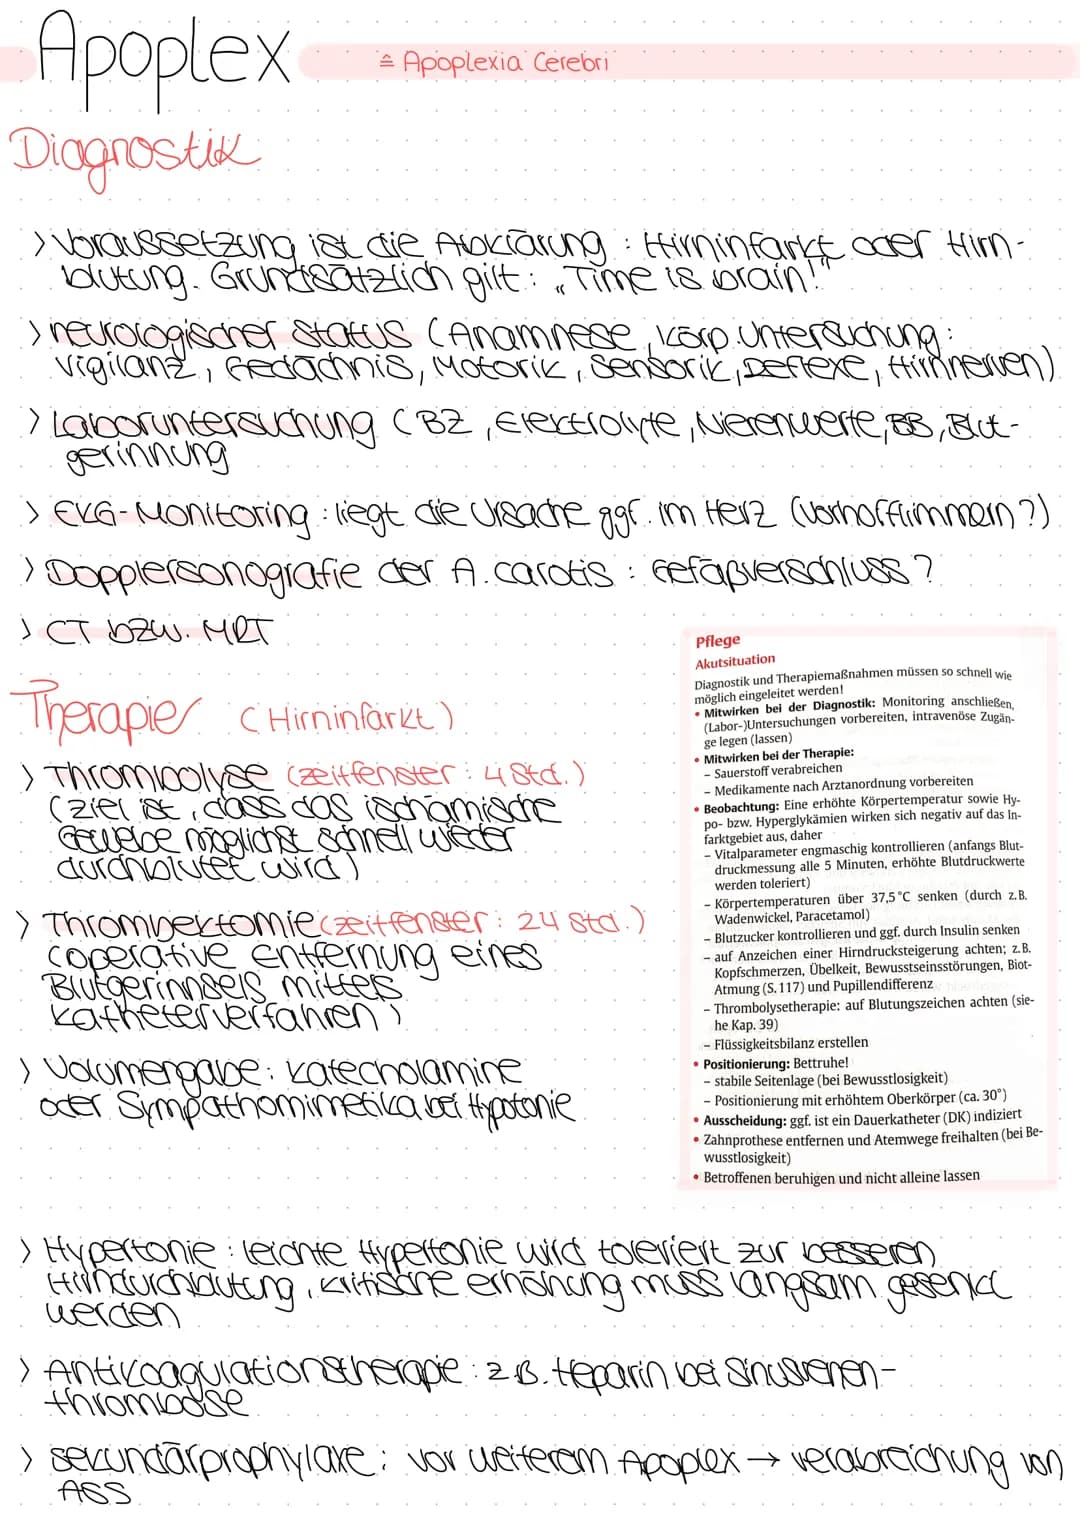 Apoplex
≙ Apoplexia Cerebri
Diagnostik
> Voraussetzung ist die Abklärung : Hirninfarkt oder Hirn-
blutung. Grundsätzlich gilt : „Time is brain!"
> neurologischer Status (Anamnese, körp. Untersuchung :
Vigilanz, Gedächnis, Motorik, Sensorik, Reflexe, Hirnnerven)
> Laboruntersuchung (BZ, Elektrolyte, Nierenwerte, BB, Blut-
gerinnung
> EKG-Monitoring : liegt die Ursache ggf. im Herz (Vorhofflimmern?)
> Dopplersonografie der A. carotis : Gefäßverschluss?
> CT bzw. MRT
Therapie (Hirninfarkt)
> Thrombolyse (Zeitfenster : 4 Std.)
(Ziel ist, dass das ischämische
Gewebe möglichst schnell wieder
durchblutet wird)
> Thrombektomie (Zeitfenster : 24 Std.)
(operative Entfernung eines
Blutgerinnsels mittels
Katheterverfahren)
> Volumengabe : Katecholamine
oder Sympathomimetika bei Hypotonie
Pflege
Akutsituation
Diagnostik und Therapiemaßnahmen müssen so schnell wie
möglich eingeleitet werden!
• Mitwirken bei der Diagnostik: Monitoring anschließen,
(Labor-)Untersuchungen vorbereiten, intravenöse Zugän-
ge legen (lassen)
• Mitwirken bei der Therapie:
– Sauerstoff verabreichen
– Medikamente nach Arztanordnung vorbereiten
• Beobachtung: Eine erhöhte Körpertemperatur sowie Hy-
po- bzw. Hyperglykämien wirken sich negativ auf das In-
farktgebiet aus, daher
– Vitalparameter engmaschig kontrollieren (anfangs Blut-
druckmessung alle 5 Minuten, erhöhte Blutdruckwerte
werden toleriert)
– Körpertemperaturen über 37,5 °C senken (durch z.B.
Wadenwickel, Paracetamol)
– Blutzucker kontrollieren und ggf. durch Insulin senken
– auf Anzeichen einer Hirndrucksteigerung achten; z.B.
Kopfschmerzen, Übelkeit, Bewusstseinsstörungen, Biot-
Atmung (S. 117) und Pupillendifferenz
– Thrombolysetherapie: auf Blutungszeichen achten (sie-
he Kap. 39)
– Flüssigkeitsbilanz erstellen
• Positionierung: Bettruhe!
– stabile Seitenlage (bei Bewusstlosigkeit)
– Positionierung mit erhöhtem Oberkörper (ca. 30°)
• Ausscheidung: ggf. ist ein Dauerkatheter (DK) indiziert
• Zahnprothese entfernen und Atemwege freihalten (bei Be-
wusstlosigkeit)
• Betroffenen beruhigen und nicht alleine lassen
> Hypertonie : leichte Hypertonie wird toleriert zur besseren
Hirndurchblutung, kritische erhöhung muss langsam gesenkt
werden
> Antikoagulationstherapie : z.B. Heparin bei Sinusvenen-
thrombose
> sekundärprophylaxe : vor weiterem Apoplex → verabreichung von
ASS